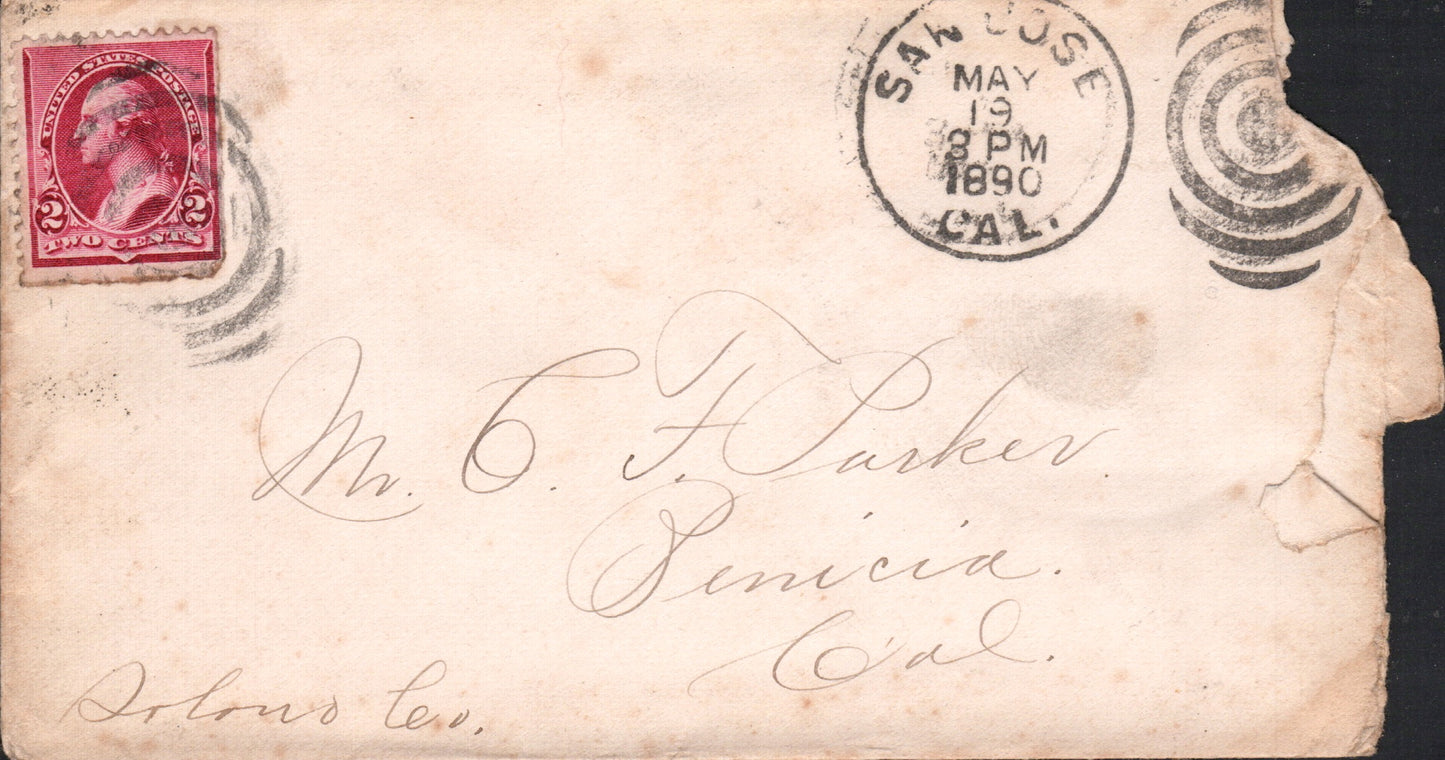 UNITED STATES POSTAGE
2 2
TWO CENTS
SAN JOSE
MAY
19
8 PM
1890
CAL.
Mr. C. F. Parker.
Benicia.
Cal.
Solano Co.